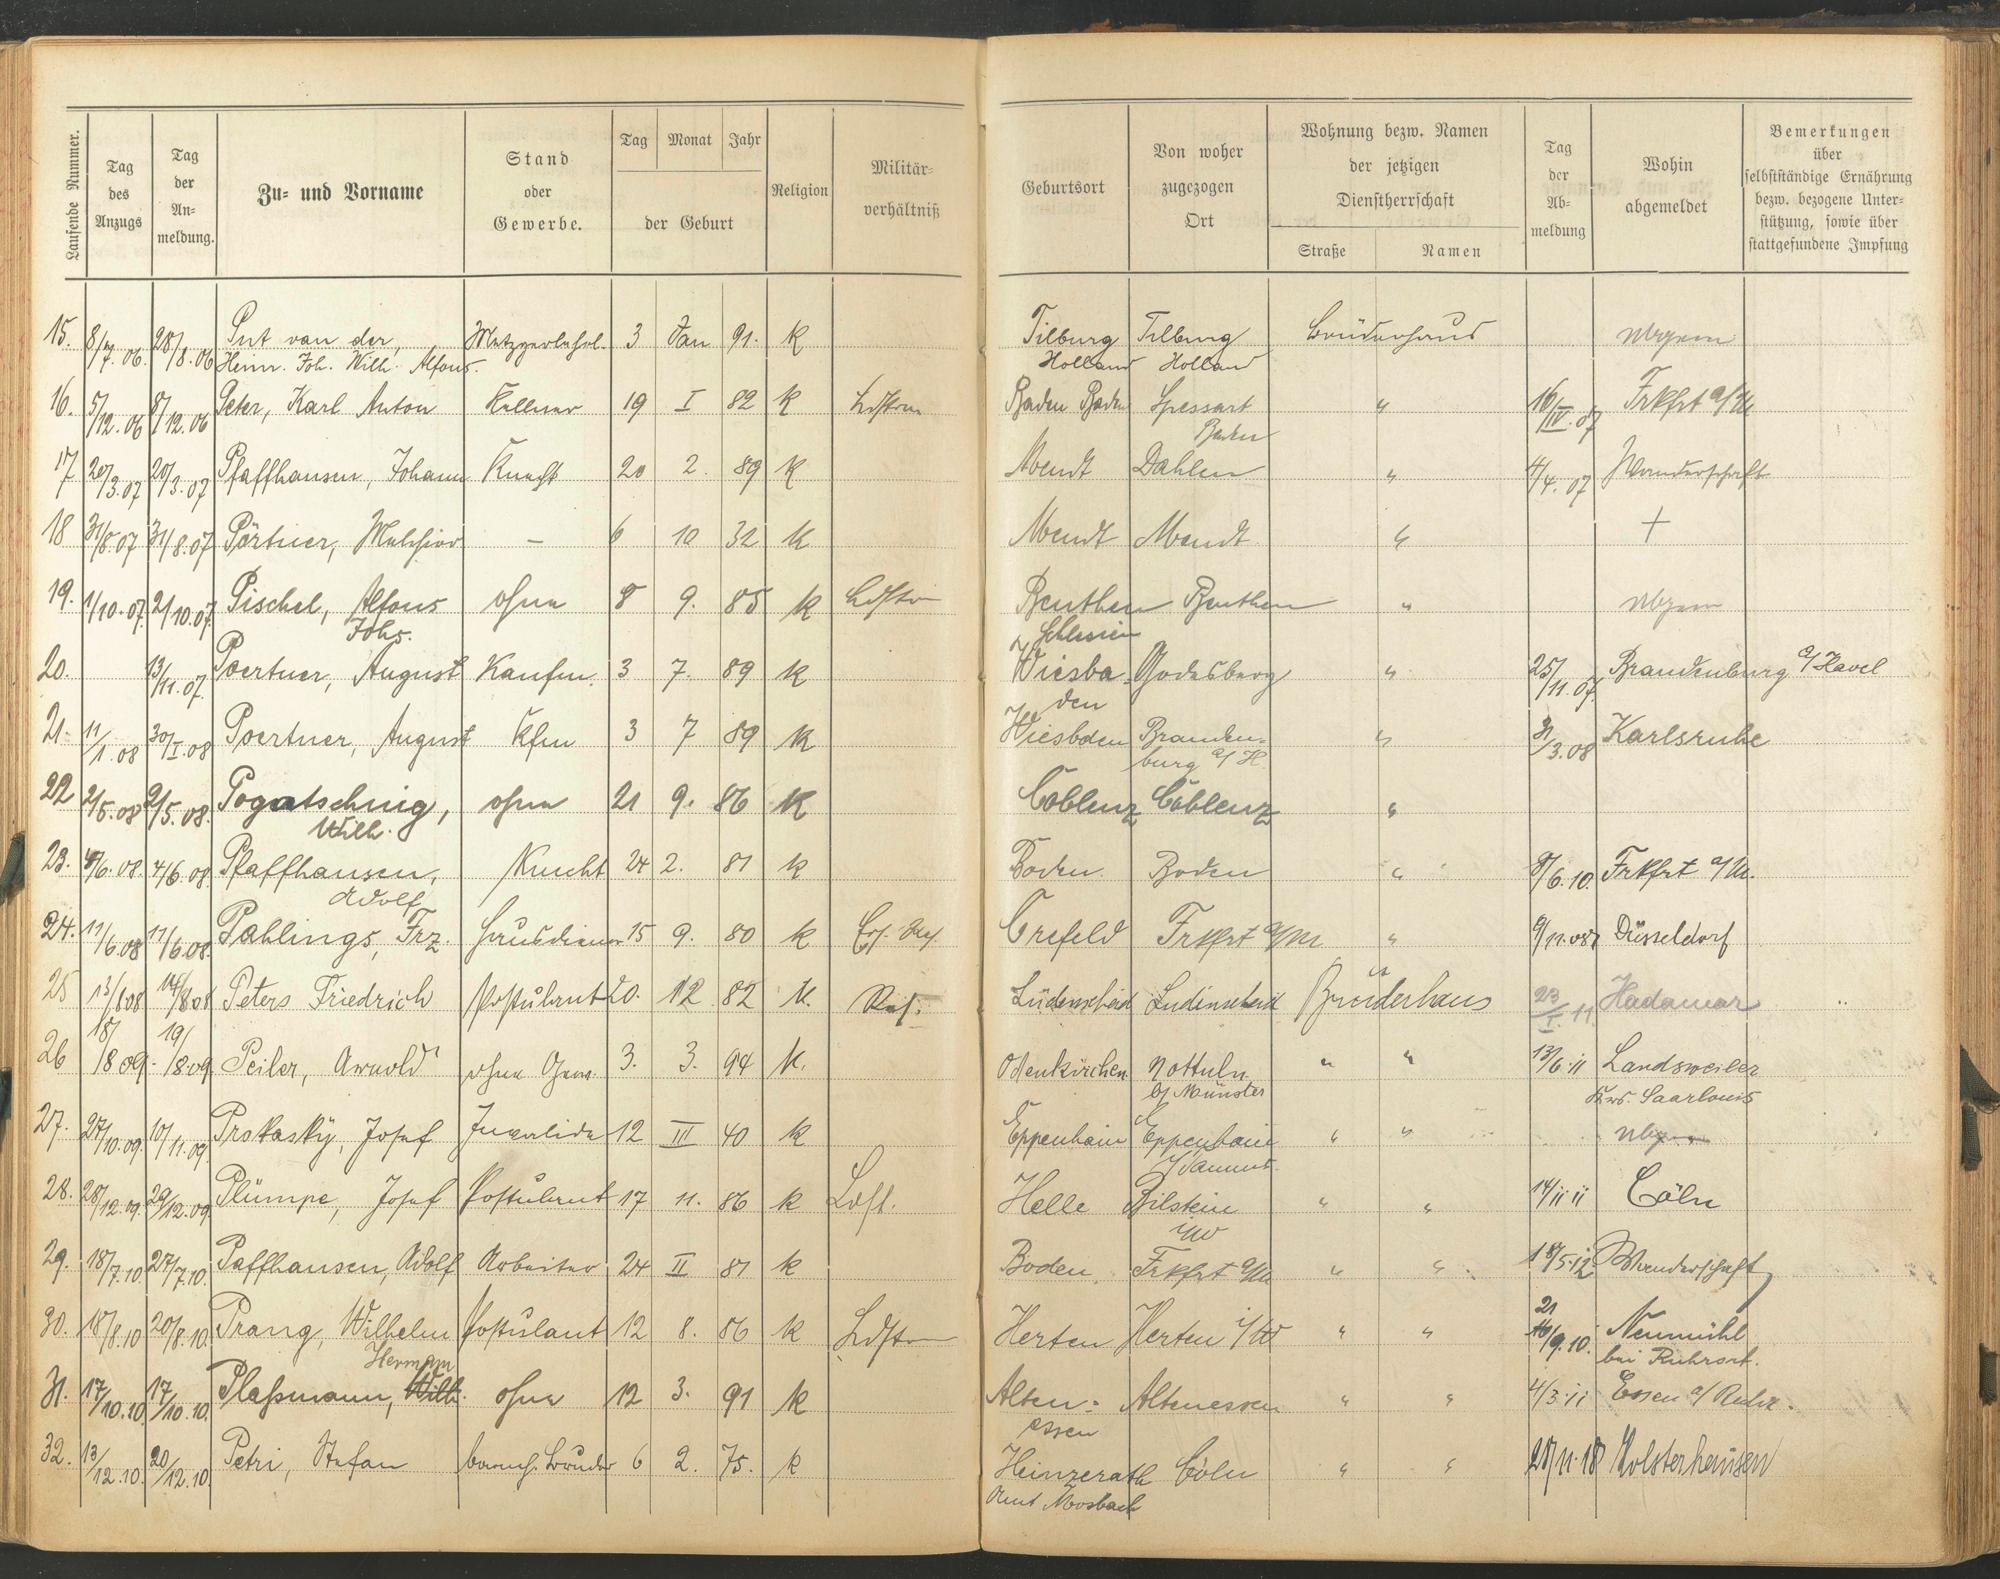 Laufende Nummer.
Tag des Anzugs
Tag der Anmeldung.
Zu- und Vorname
Stand oder Gewerbe.
Tag Monat Jahr
der Geburt
Religion
Militärverhältniß
Geburtsort
Von woher zugezogen Ort
Wohnung bezw. Namen der jetzigen Dienstherrschaft
Straße Namen
Tag der Abmeldung
Wohin abgemeldet
Bemerkungen über selbstständige Ernährung bezw. bezogene Unterstützung, sowie über stattgefundene Impfung
15. 8/7. 06. 28/8. 06 Put van der, Metzgerlehrl. 3 Jan 91. k Tilburg Tilburg Brüderhaus
Heinr. Joh. Wilh. Alfons. Holland Holland
16. 5/12. 06 8/12. 06 Peter, Karl Anton Kellner 19 I 82 k Ldstrm Baden Baden Spessart " 16/IV. 07 Frkfrt a/M
Baden
17 20/3.07 20/3.07 Pfaffhausen, Johann Knecht 20 2. 89 k Mendt Dahlen " 4/4. 07 Wanderschaft
18 31/8.07 31/8.07 Pörtner, Melchior – 6 10 32 k Mendt Mendt " +
19. 1/10.07. 2/10.07. Pischel, Alfons ohne 8 9. 85 k Ldstr Beuthen Beuthen "
Johs. Schlesien
20. 13/11.07. Poertner, August Kaufm. 3 7. 89 k Wiesba- Godesberg " 25/11.07. Brandenburg a/Havel
den
21. 11/1.08 30/I.08 Poertner, August Kfm 3 7 89 k Wiesbaden Branden- " 31/3.08 Karlsruhe
burg a/H.
22 2/5.08 2/5.08. Pogatschnig, ohne 21 9. 86 k Coblenz Coblenz "
Wilh.
23. 4/6.08. 4/6.08. Pfaffhausen, Knecht 24 2. 81 k Boden Boden " 8/6.10. Frkfrt a/M.
Adolf
24. 11/6.08 11/6.08. Pahlings, Frz. Hausdiener 15 9. 80 k Ers. Res. Crefeld Frkfrt a/M " 9/11.08 Düsseldorf
25 13/8.08 14/8.08 Peters Friedrich Postulant 20. 12 82 k. Res. Lüdenscheid Lüdinscheid Brüderhaus 23/I. 11. Hadamar "
26 18/8 09. 19/8.09. Peiler, Arnold ohne Gew. 3. 3. 94 k. Odenkirchen Nottuln " " 13/6.11 Landsweiler
b/Münster Krs. Saarlouis
27. 27/10.09. 10/11.09. Proskasky, Josef Invalide 12 III 40 k Eppenhain Eppenhain " "
i/Taunus.
28. 28/12.09. 29/12.09 Plümpe, Josef Postulant 17 11. 86 k Ldst. Helle Bilstein " " 14/11 11 Cöln
i/W
29. 18/7.10. 27/7.10. Paffhausen, Adolf Arbeiter 24 II 81 k Boden. Frkfrt a/M " " 18/5.12 Wanderschaft
30. 18/8.10 20/8.10. Prang, Wilhelm Postulant 12 8. 86 k Ldstr Herten Herten i/W " " 21/9.10. Neumühl
Hermann bei Ruhrort.
31. 17/10.10 17/10.10. Plaßmann, Wilh. ohne 12 3. 91 k Alten- Altenessen " " 4/3.11 Essen a/Ruhr.
essen
32. 13/12.10. 20/12.10. Petri, Stefan barmh. Bruder 6 2. 75. k Heinzerath Cöln " " 28/11.18 Holsterhausen
Amt Morbach